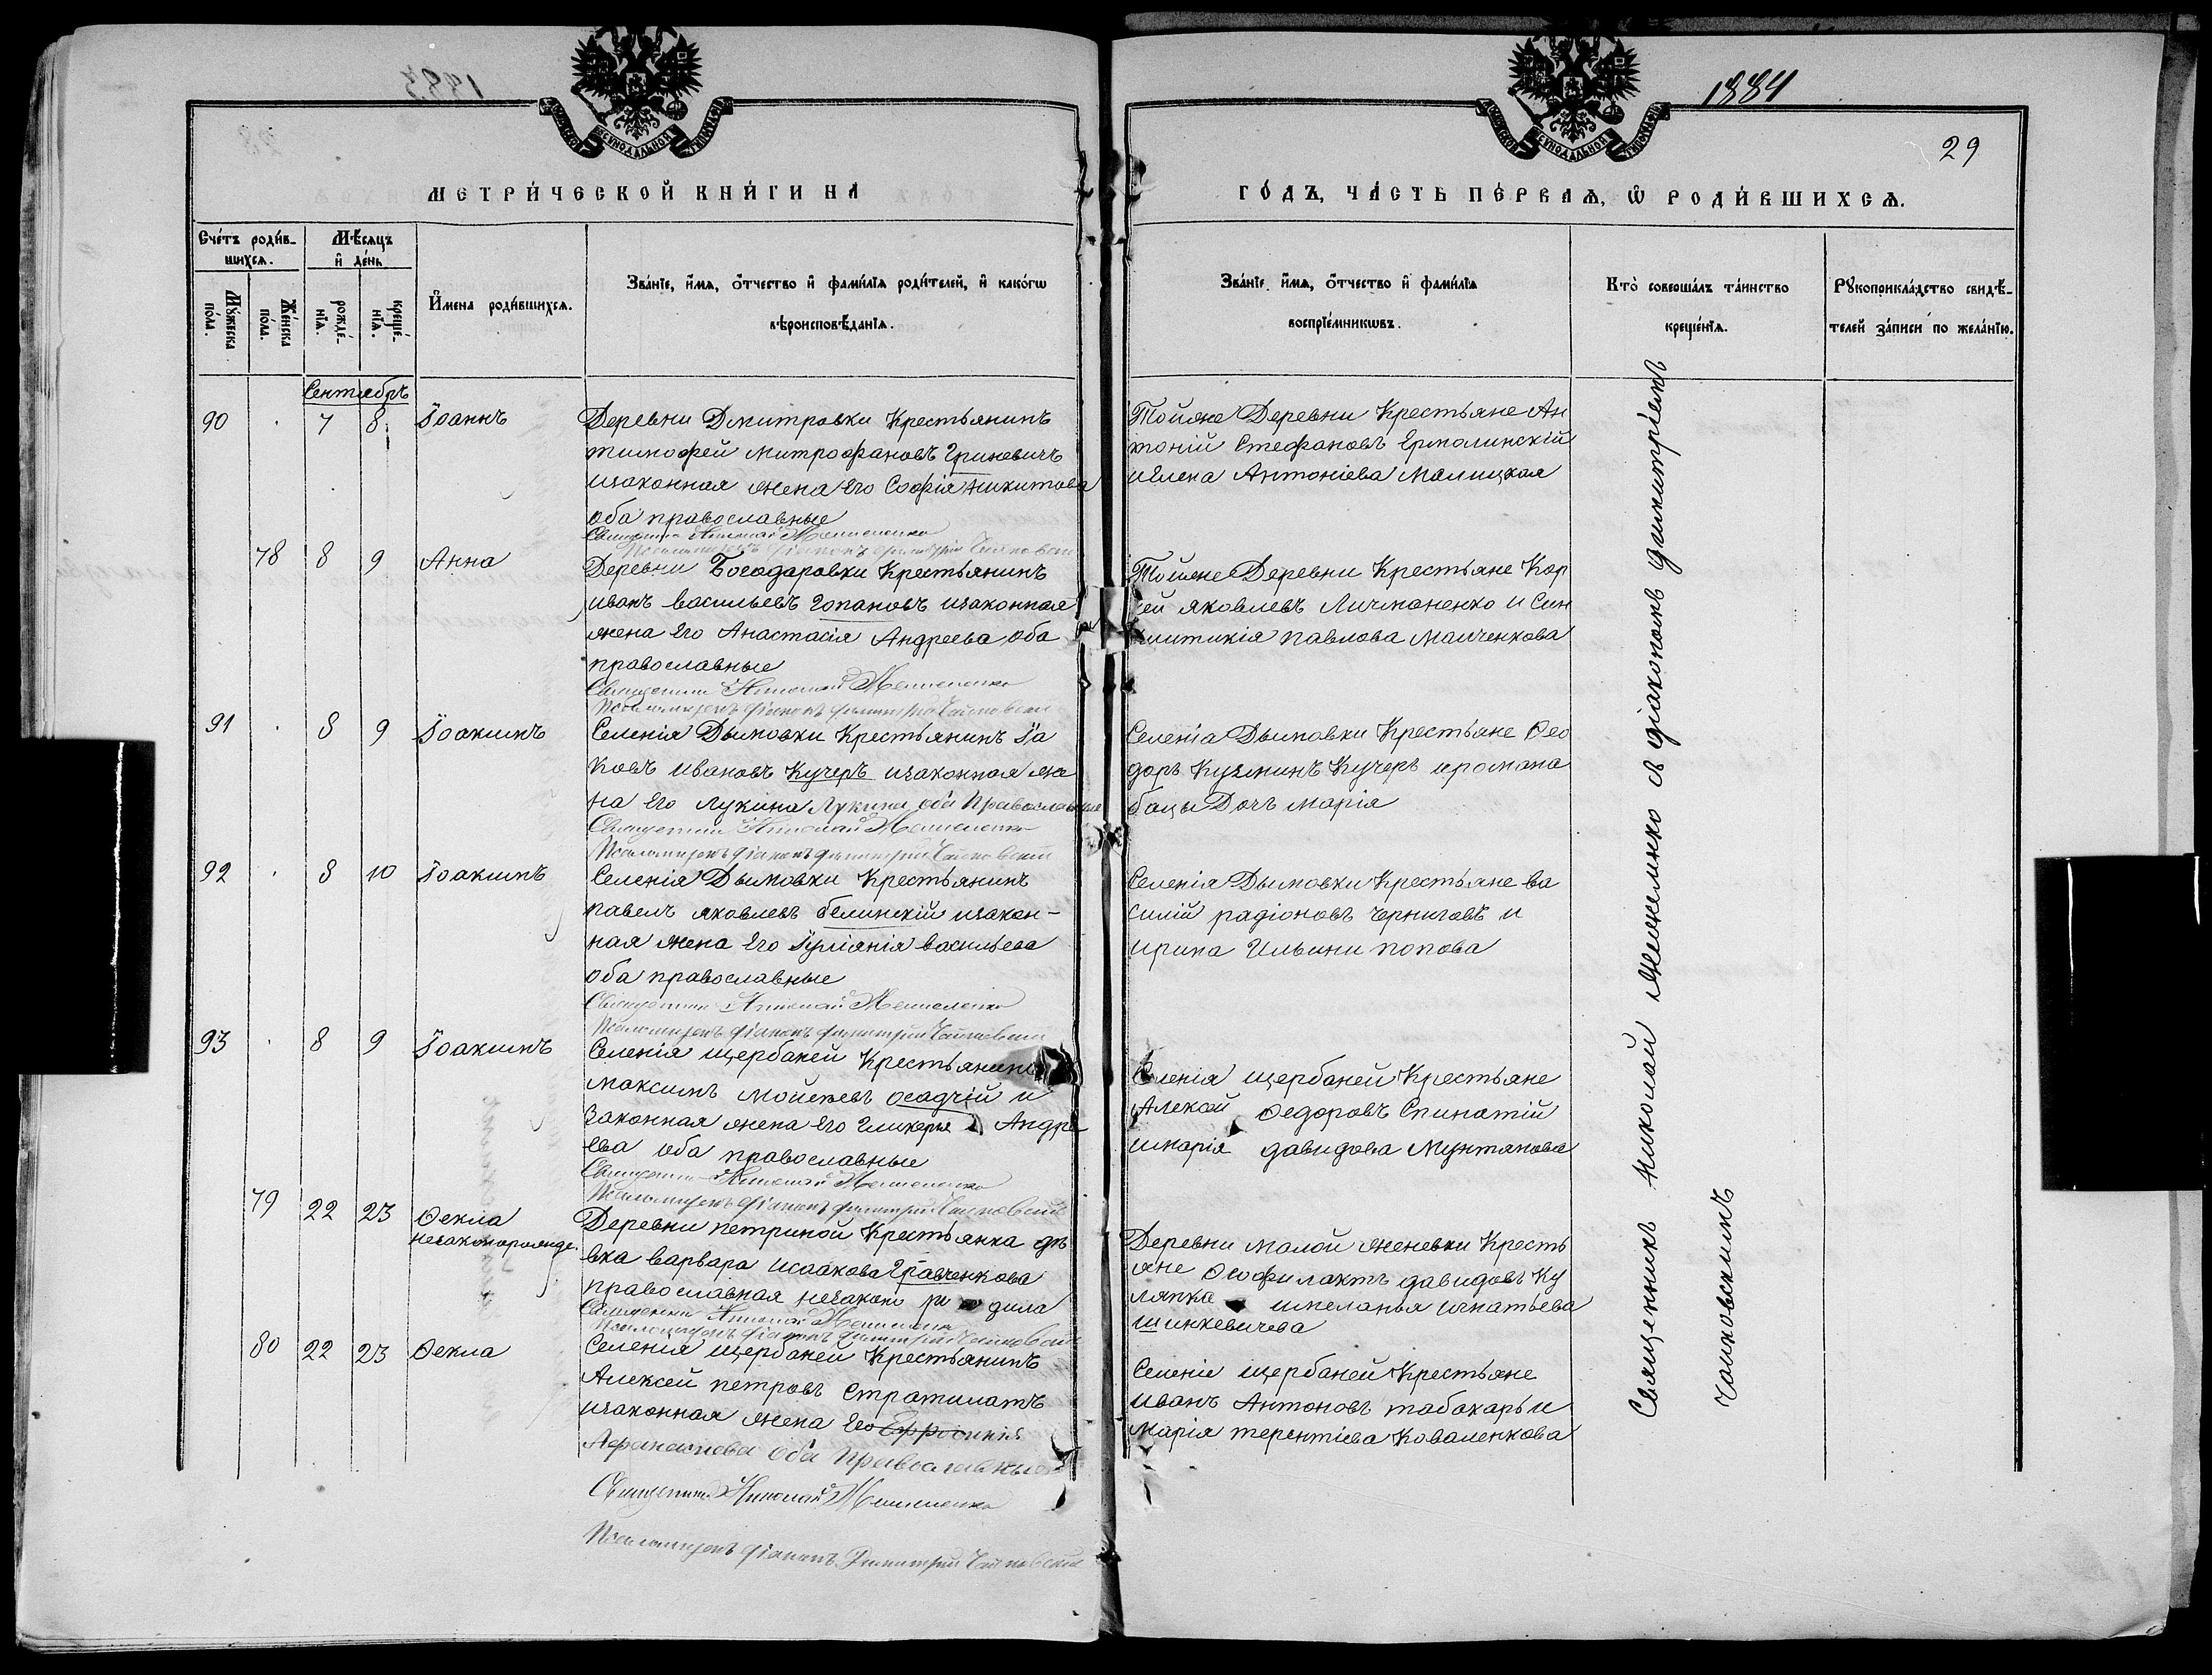 1884
29
МЕТРИ́ЧЕСКОЙ КНИ́ГИ НА̀
ГО́ДЪ, ЧА́СТЬ ПЕ́РВАѦ, Ѡ҆ РОДИ́ВШИХСѦ.
Сче́тъ роди́в-
шихсѧ.
Мꙋ́жеска
по́ла.
Же́нска
по́ла.
Мѣ́сѧцъ
и҆ де́нь
рожде́-
нїѧ.
креще́-
нїѧ.
И҆мена̀ роди́вшихсѧ.
Зва́нїе, и҆́мѧ, ѻ҆́тчество и҆ фами́лїѧ роди́телей, и҆ како́гѡ
вѣроисповѣ́данїѧ.
Зва́нїе, и҆́мѧ, ѻ҆́тчество и҆ фами́лїѧ
воспрїе́мникѡвъ.
Кто̀ соверша́лъ та́инство
креще́нїѧ.
Рꙋкоприкла́дство свидѣ́-
телей за́писи по жела́нїю.
Сентябрь
90 7 8 Іоаннъ
Деревни Дмитровки Крестьянинъ
тимофей митрофановъ Гриневичъ
изаконная жена его Софія никитова
оба православные
Священникъ Николай
Псаломщикъ діаконъ Димитрій Чайковскій
Тойже Деревни Крестьяне Ан
тоній Стефановъ Ермолинскій
иелена Антоніева Малицкая
78 8 9 Анна
Деревни Богодаровки Крестьянинъ
иванъ васильевъ гопановъ изаконная
жена его Анастасія Андреева оба
православные
Священникъ Николай
Псаломщикъ діаконъ Димитрій Чайковскій
Тойже Деревни Крестьяне Кор
ней яковлевъ Личманенко и Син
клитикія павлова Манченкова
91 8 9 Іоакимъ
Селенія Дымовки Крестьянинъ Іа
ковъ ивановъ Кучеръ изаконная же
на его Лукіна Лукина оба Православные
Священникъ Николай
Псаломщикъ діаконъ Димитрій Чайковскій
Селенія Дымовки Крестьяне Ѳео
доръ Кузминъ Кучеръ иромана
бацы Дочь марія
92 8 10 Іоакимъ
Селенія Дымовки Крестьянинъ
павелъ яковлевъ белинскій изакон-
ная жена его Іуліанія васильева
оба православные
Священникъ Николай
Псаломщикъ діаконъ Димитрій Чайковскій
Селенія Дымовки Крестьяне ва
силій радіоновъ Черниговъ и
ирина Ильини попова
93 8 9 Іоакимъ
Селенія щербаней Крестьянинъ
максимъ мойсеевъ осадчій и
законная жена его гликерія Андре
ева оба православные
Священникъ Николай
Псаломщикъ діаконъ Димитрій Чайковскій
Селенія щербаней Крестьяне
Алексей Ѳедоровъ Спинатій
имарія давидова Мунтянова
79 22 23 Ѳекла
незаконорожде.
Деревни петриной Крестьянка дѣ
вка варвара исаакова Гравченкова
православная незакон родила
Священникъ Николай
Псаломщикъ діаконъ Димитрій Чайковскій
Деревни малой женевки Кресть
яне Ѳеофилактъ давидовъ Ку
ляпка имеланья игнатьева
шинкевичева
80 22 23 Ѳекла
Селенія щербаней Крестьянинъ
Алексей петровъ Стратилатъ
изаконная жена его Ефросинія
Афанасиева оба Православные
Священникъ Николай
Псаломщикъ діаконъ Димитрій Чайковскій
Селеніе щербаней Крестьяне
иванъ Антоновъ табакарь и
марія терентіева Коваленкова
Священникъ николай съ діакономъ димитріемъ
Чайковскимъ